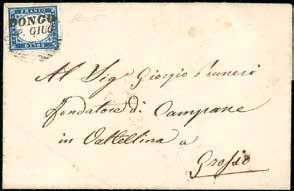 FRANCO
BOLLO
DONGO
GIUG
Al Sigr Giorgio Pruneri
Fondatore di Campane
in Valtellina a
Grosio